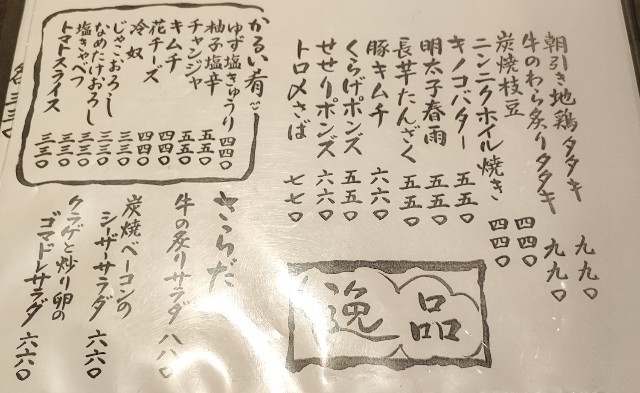 朝引き地鶏タタキ 九九〇
牛のわら炙りタタキ 九九〇
炭焼枝豆 四四〇
ニンニクホイル焼き 四四〇
キノコバター 五五〇
明太子春雨 五五〇
長芋たんざく 五五〇
豚キムチ 六六〇
くらげポンズ 五五〇
せせりポンズ 六六〇
トロ〆さば 七七〇
逸品
かるい肴
ゆず塩きゅうり 四四〇
柚子塩辛 五五〇
チャンジャ 五五〇
キムチ 四四〇
花チーズ 四四〇
冷奴 三三〇
じゃこおろし 三三〇
なめたけおろし 三三〇
塩きゃべつ 三三〇
トマトスライス 三三〇
さらだ
牛の炙りサラダ 八八〇
炭焼ベーコンの
シーザーサラダ 六六〇
クラゲと炒り卵の
ゴマドレサラダ 六六〇